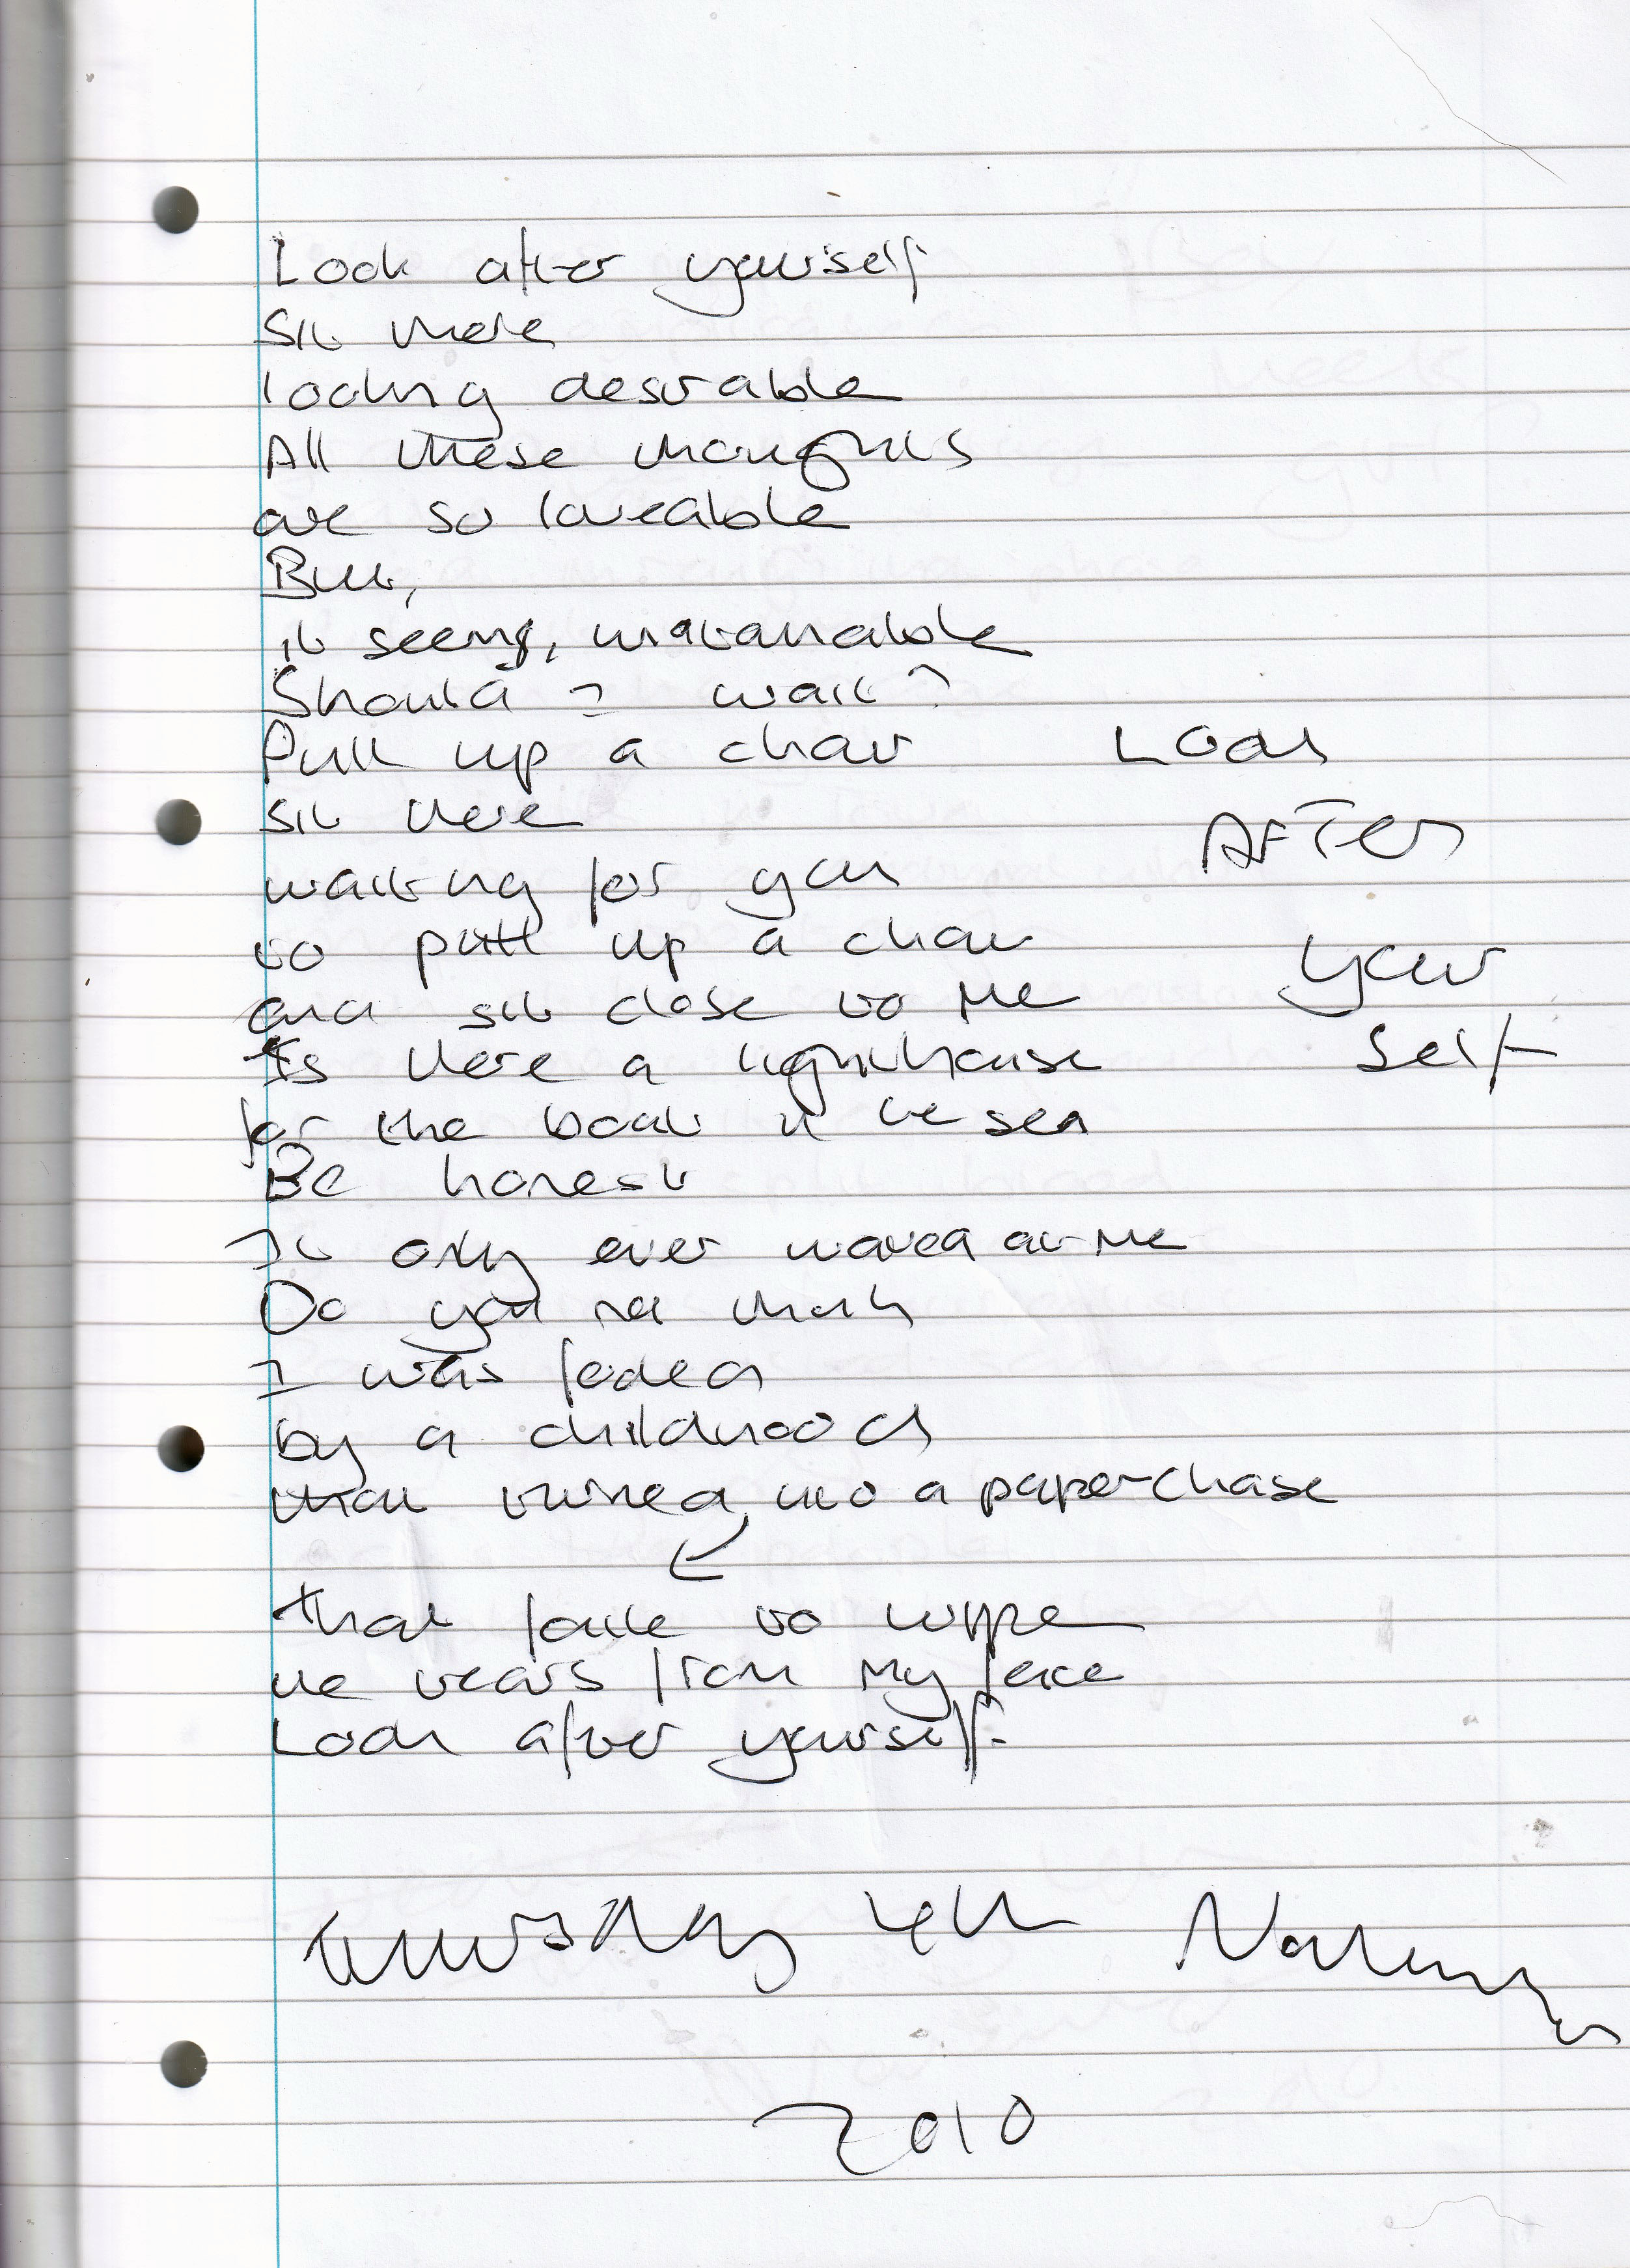 Look after yourself
Sit there
looking desirable
All these thoughts
are so loveable
But,
it seems, unattainable
Should I wait?
Pull up a chair
sit there
waiting for you
to pull up a chair
and sit close to me
Is there a lighthouse
for the boat in the sea
Be honest
It only ever waved at me
Do you not think
I was failed
by a childhood
that turned into a paperchase
that failed to wipe
the tears from my face
Look after yourself.
LOOK
AFTER
your
self
Thursday 4th November
2010